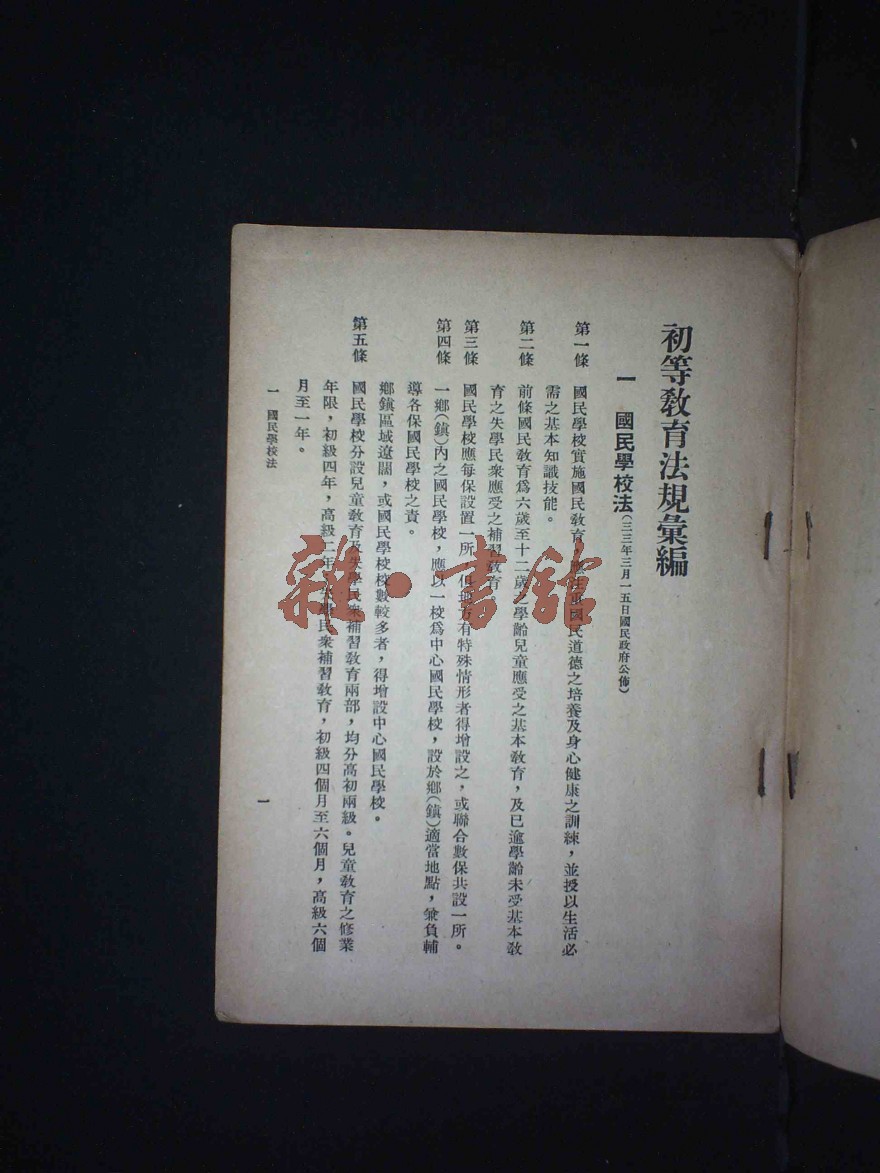 初等教育法規彙編
一 國民學校法(三三年三月一五日國民政府公佈)
第一條 國民學校實施國民教育,應注重國民道德之培養及身心健康之訓練,並授以生活必
需之基本知識技能。
第二條 前條國民教育爲六歲至十二歲之學齡兒童應受之基本教育,及已逾學齡未受基本教
育之失學民衆應受之補習教育。
第三條 國民學校應每保設置一所,但地方有特殊情形者得增設之,或聯合數保共設一所。
第四條 一鄉(鎮)內之國民學校,應以一校爲中心國民學校,設於鄉(鎮)適當地點,兼負輔
導各保國民學校之責。
鄉鎮區域遼闊,或國民學校校數較多者,得增設中心國民學校。
第五條 國民學校分設兒童教育及失學民衆補習教育兩部,均分高初兩級。兒童教育之修業
年限,初級四年,高級二年,失學民衆補習教育,初級四個月至六個月,高級六個
月至一年。
一 國民學校法
一
雜·書館